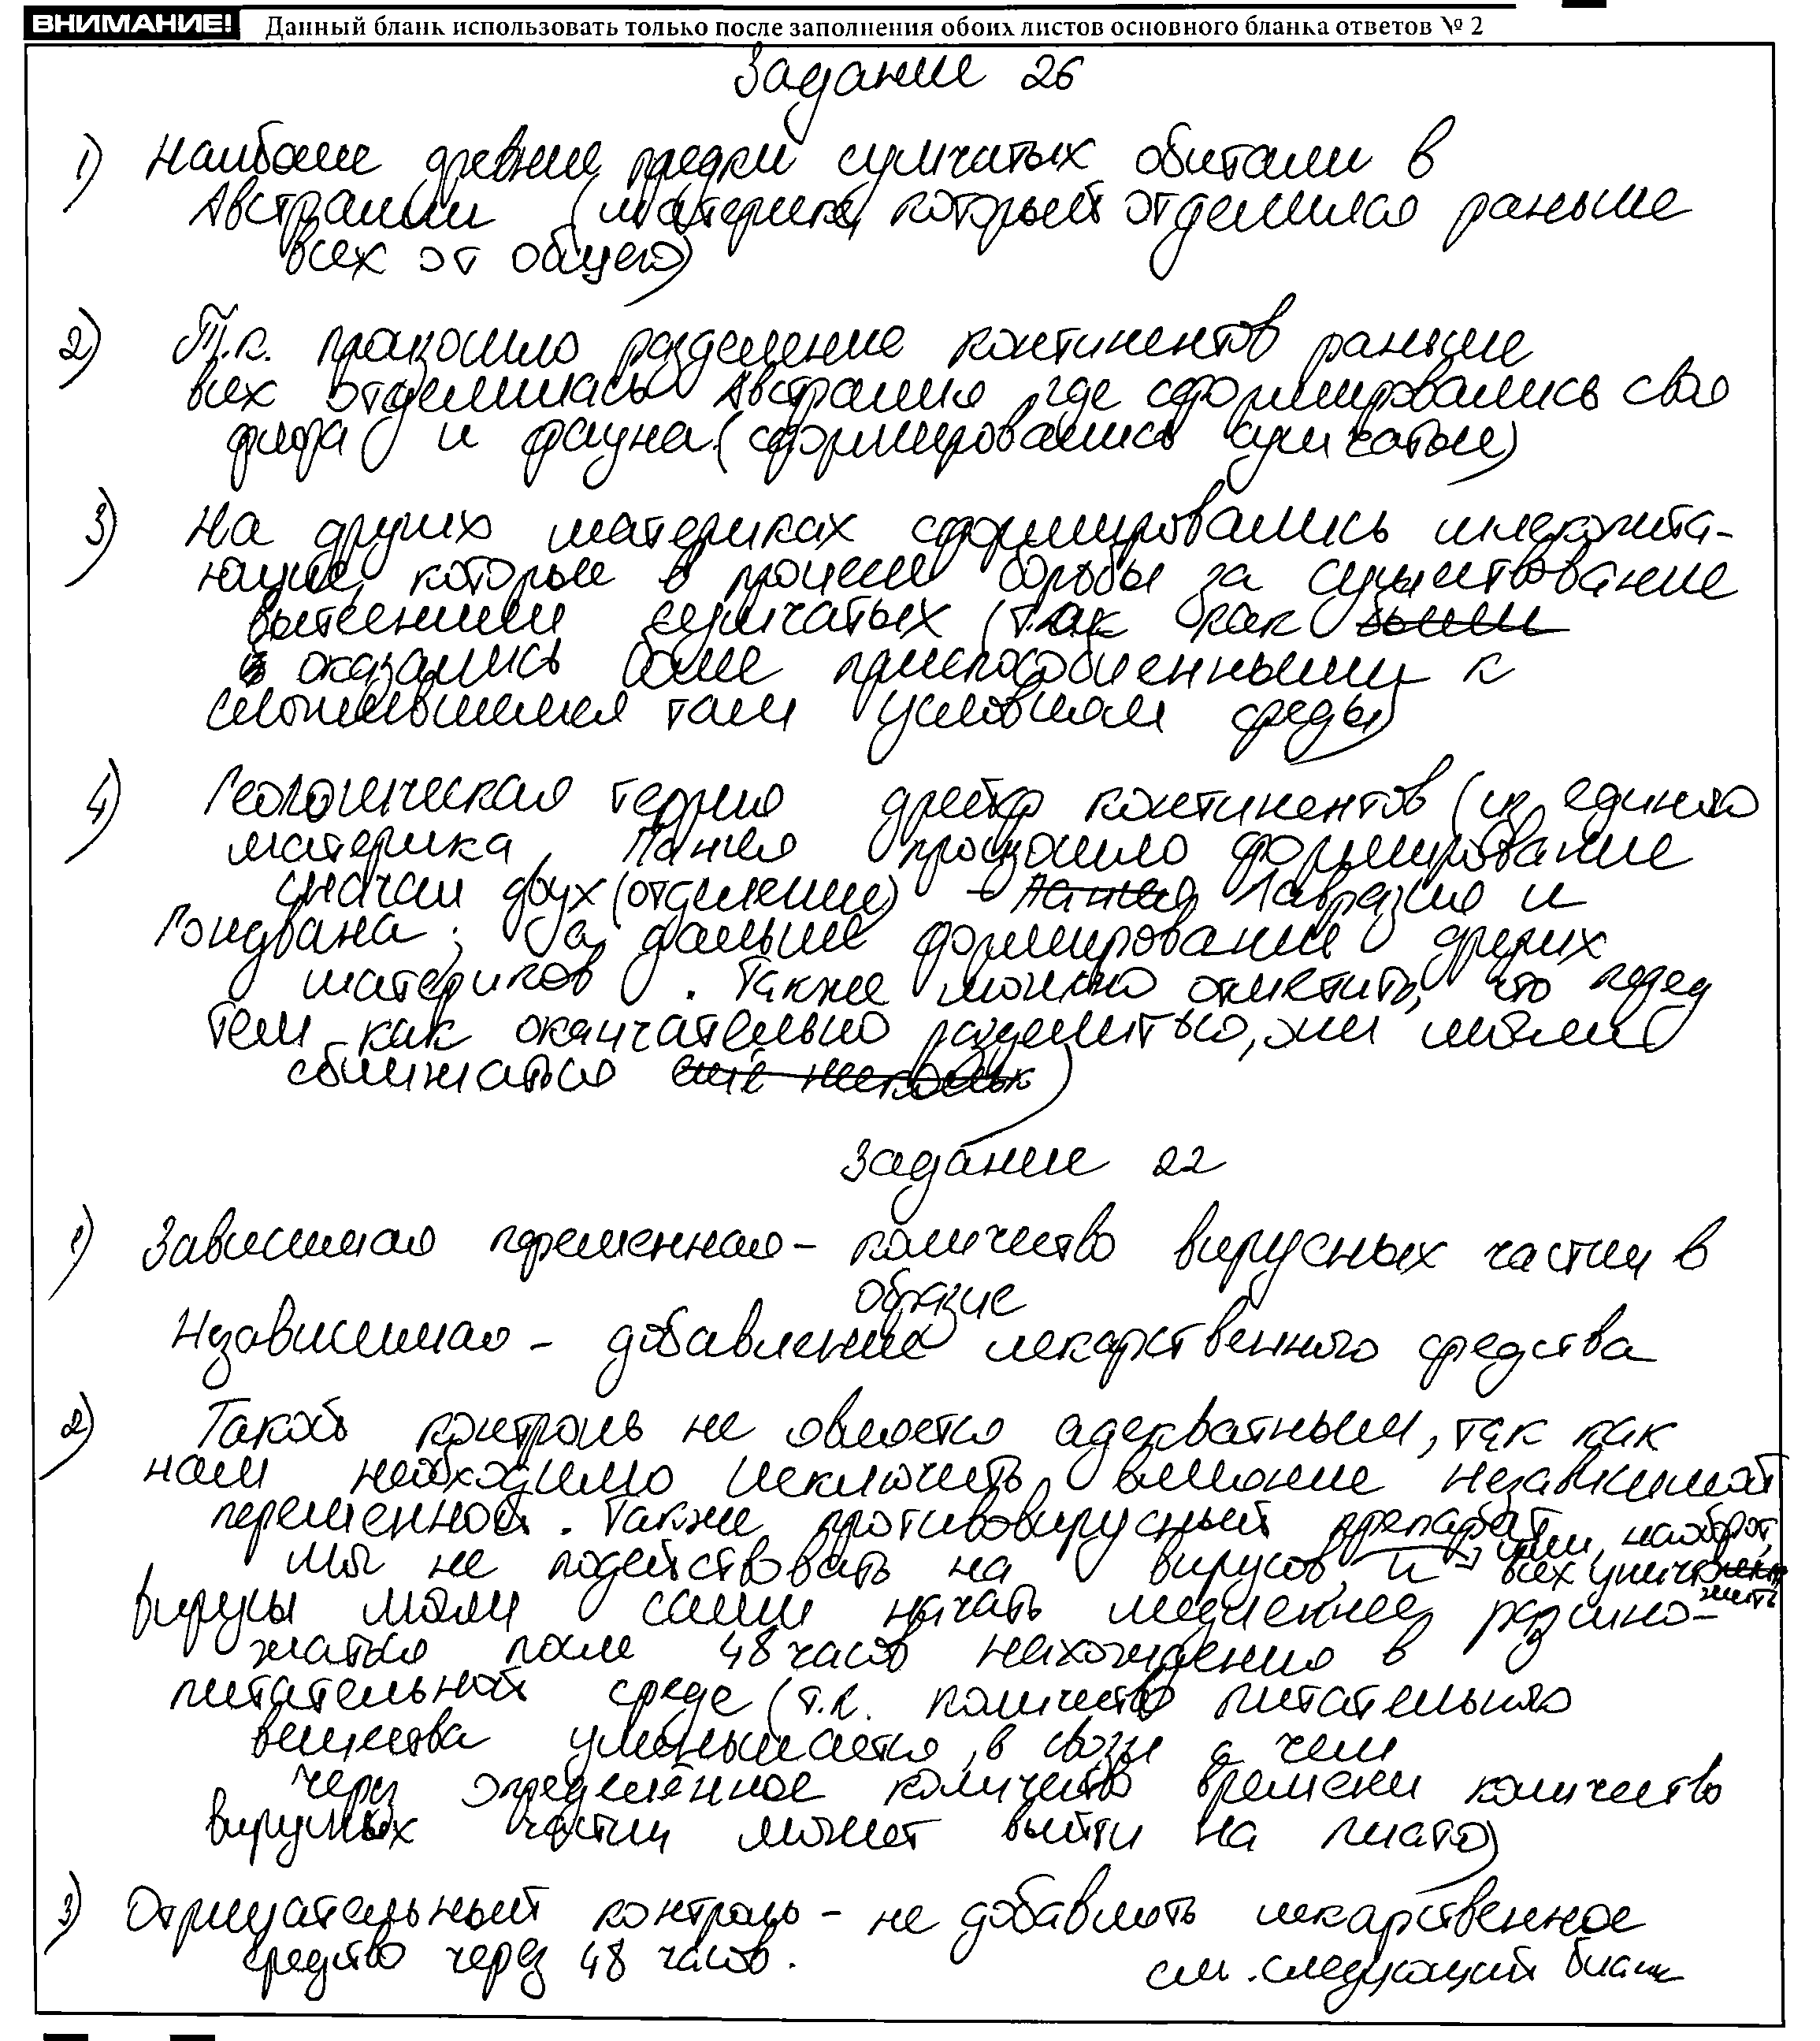 ВНИМАНИЕ! Данный бланк использовать только после заполнения обоих листов основного бланка ответов № 2
Задание 26
1) Наиболее древние предки сумчатых обитали в
Австралии (материке, который отделился раньше
всех от общего)
2) Т.к. произошло разделение континентов раньше
всех отделилась Австралия, где сформировались своя
флора и фауна (сформировались сумчатые)
3) На других материках сформировались млекопита-
ющие, которые в процессе борьбы за существование
вытеснили сумчатых (так как были
оказались более приспособленными к
сложившимся там условиям среды)
4) Геологическая теория дрейфа континентов (из единого
материка Пангея произошло формирование
сначала двух (отделение) - Пангея Лавразия и
Гондвана; а дальше формирование других
материков. Также можно отметить, что перед
тем как окончательно разделиться, они могли
сближаться ещё несколько)
Задание 22
1) Зависимая переменная - количество вирусных частиц в
образце
Независимая - добавление лекарственного средства
2) Такой контроль не является адекватным, так как
нам необходимо исключить влияние независимой
переменной. Также противовирусный препарат
или, наоборот,
мог не подействовать на вирусов, и всех уничто
жить
вирусы могли сами начать медленнее размно-
жаться после 48 часов нахождения в
питательной среде (т.к. количество питательного
вещества уменьшается, в связи с чем
через определённое количество времени количество
вирусных частиц может выйти на плато)
3) Отрицательный контроль - не добавлять лекарственное
средство через 48 часов.
см. следующий бланк